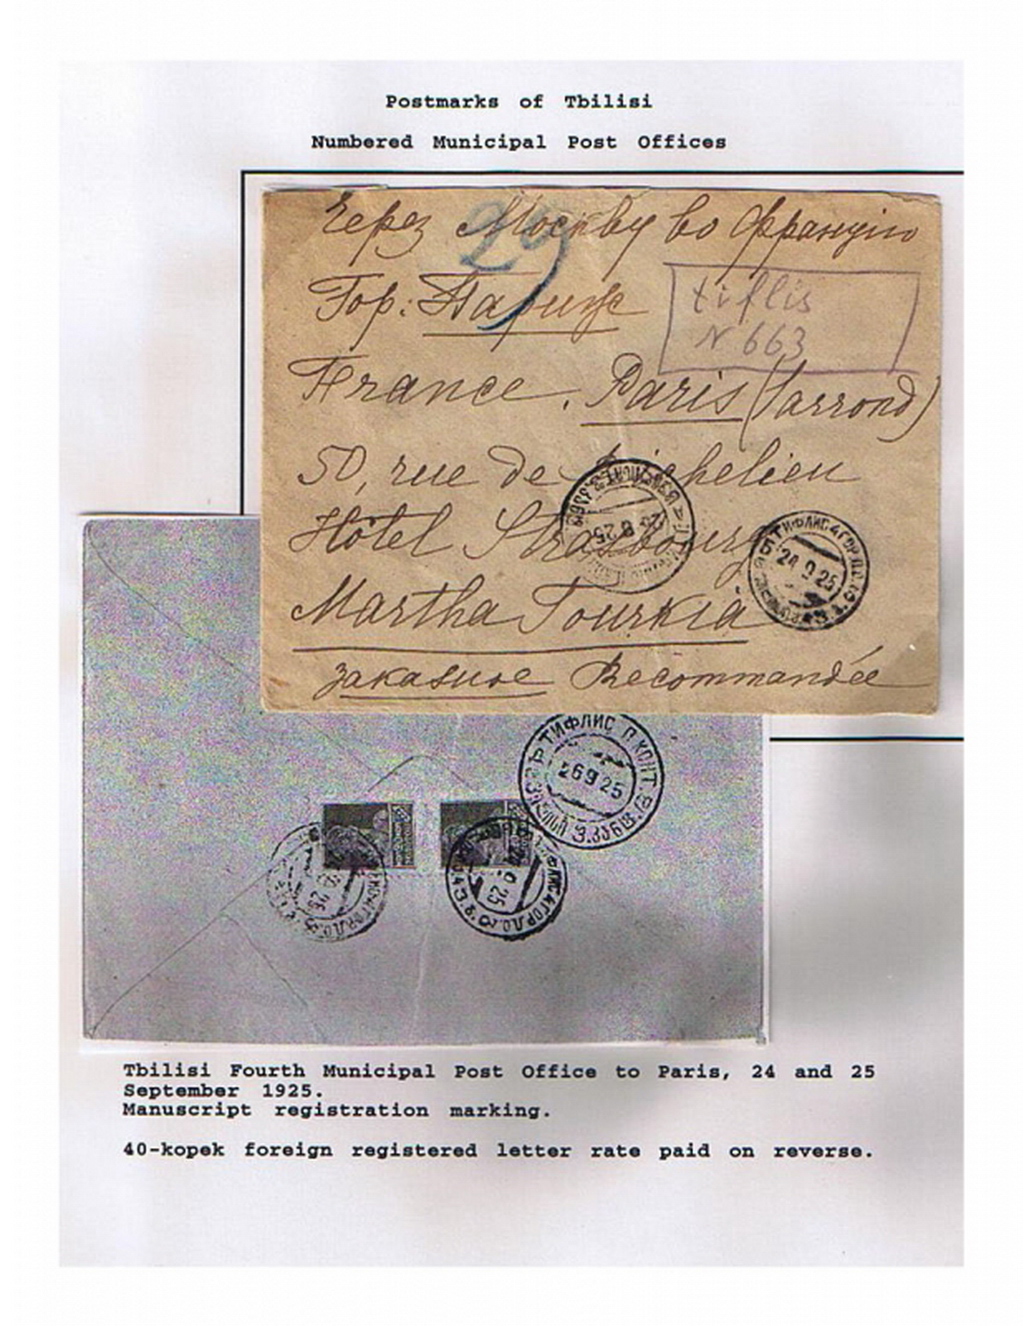 Postmarks of Tbilisi
Numbered Municipal Post Offices
Через Москву во Францію
29
Гор: Париж
tiflis
N 663
France. Paris (1 arrond)
50, rue de Richelieu
Hôtel Strasbourg
Martha Tourkia
заказное Recommandée
ТИФЛИС 4 ГОР.П.О.
24.9.25
25.9.25
ТИФЛИС П. КОНТ.
26 9 25
Tbilisi Fourth Municipal Post Office to Paris, 24 and 25
September 1925.
Manuscript registration marking.
40-kopek foreign registered letter rate paid on reverse.